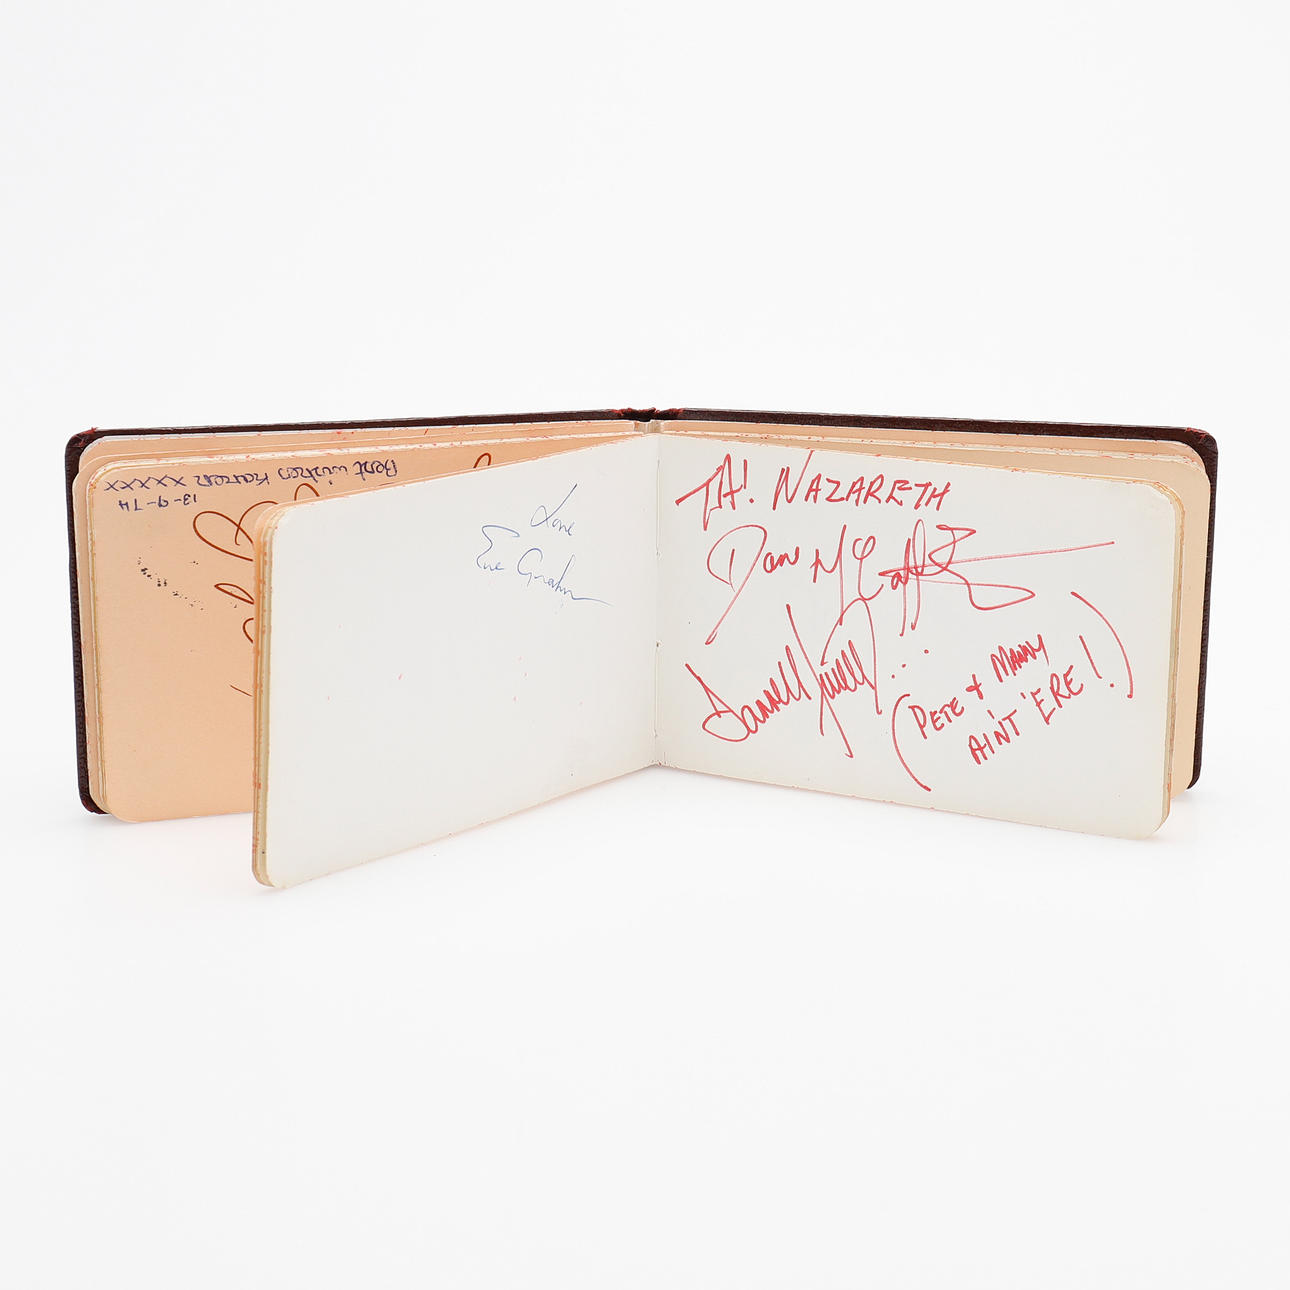 Best wishes Karen XXXXX
13-9-74
Love
Eve Graham
TA! NAZARETH
Dan McCafferty
Darrell Sweet...
(PETE + MANNY
AIN'T 'ERE!)